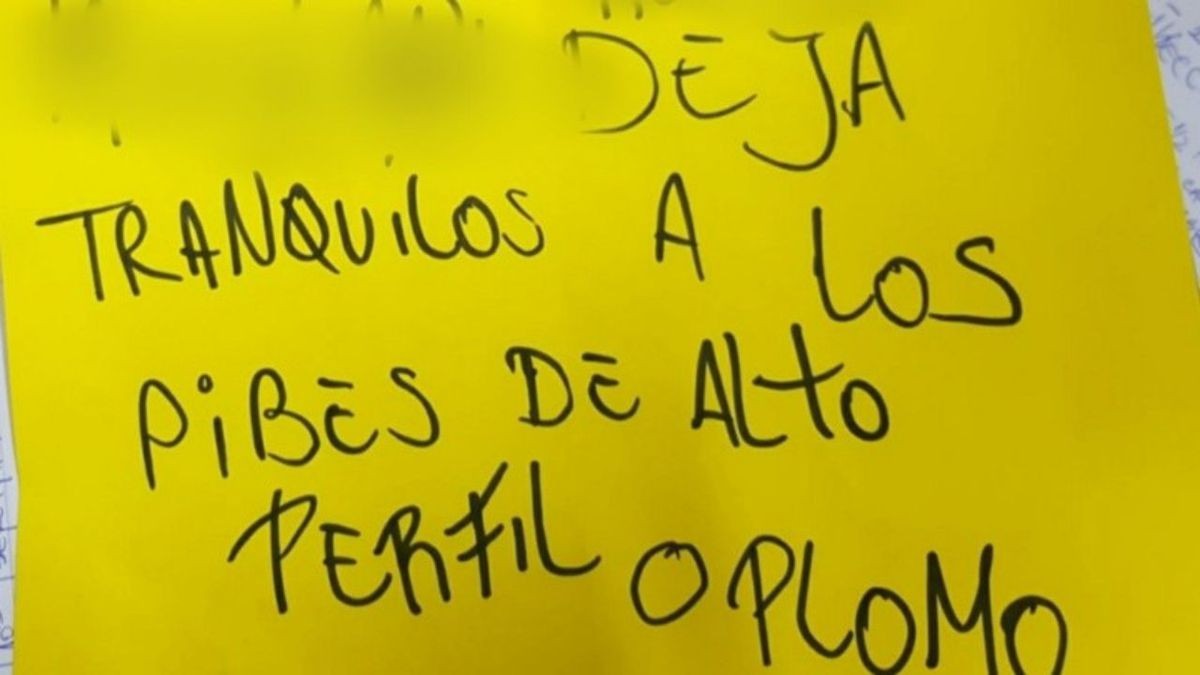 DEJA
TRANQUILOS A LOS
PIBES DE ALTO
PERFIL O PLOMO